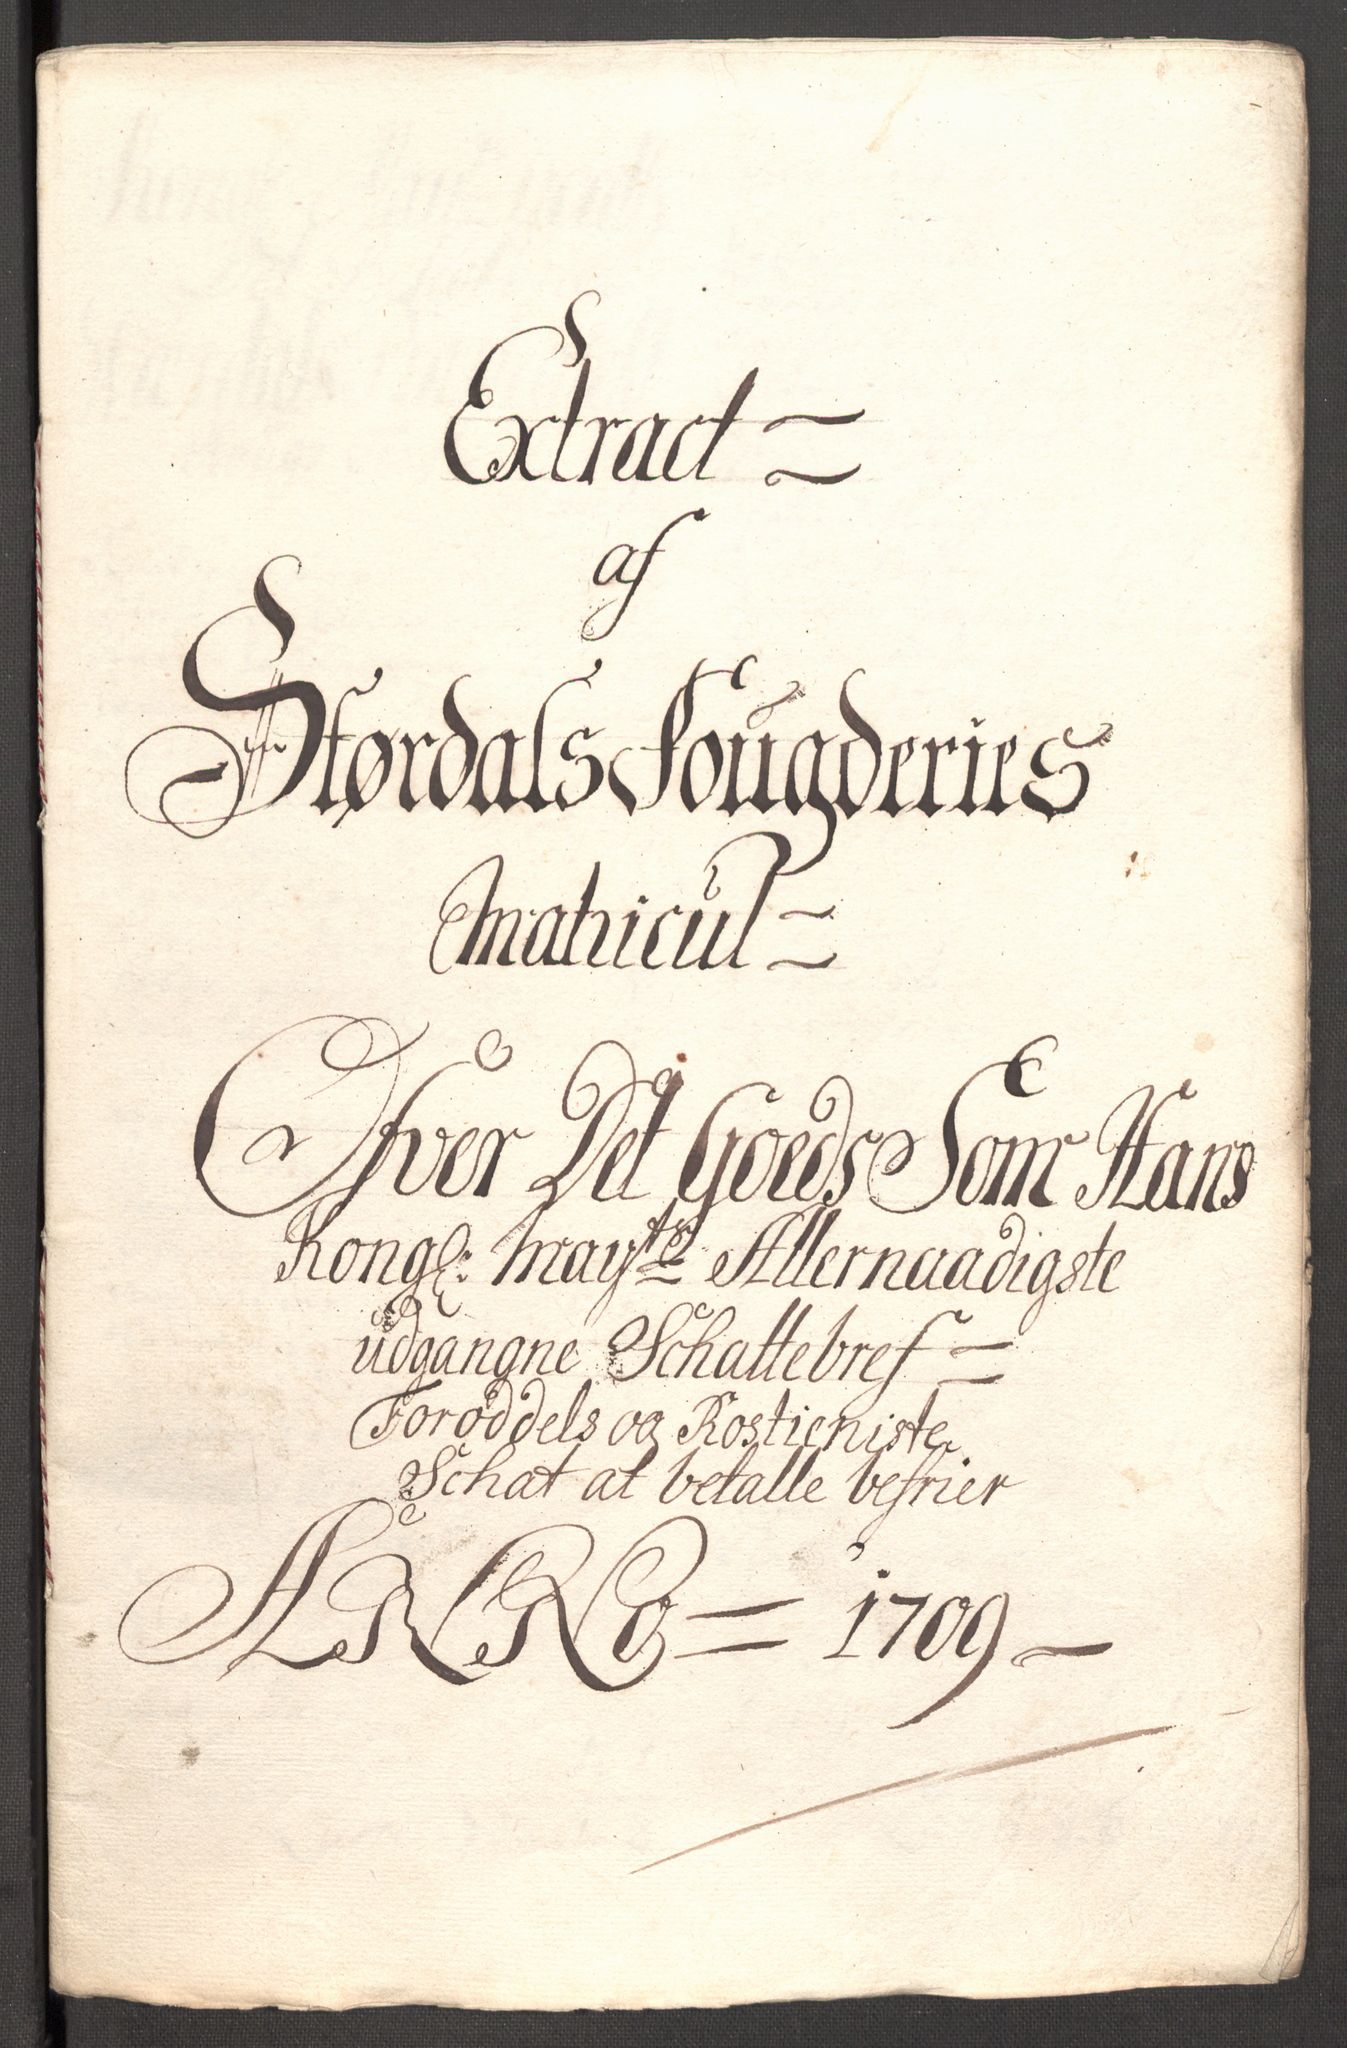 Extract =
af
Størdals Fougderies
Matricul =
Ofver Det Goeds Som Hans
Kongl: Mayts Allernaadigste
udgangne Schattebref =
Forøddels og Rostieniste
Schat at betalle befrier
ANNO = 1709 -